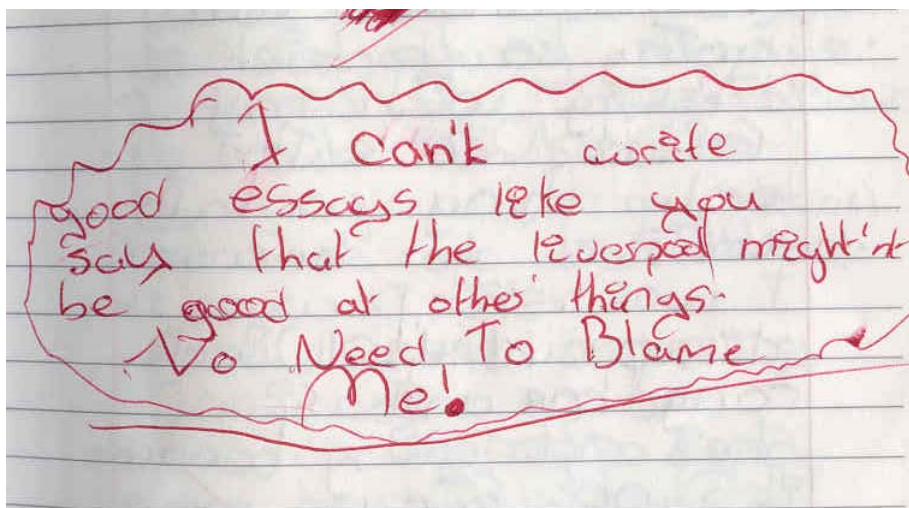 I can't write
good essays like you
say that the liverpool might'nt
be good at other things.
No Need To Blame
Me!